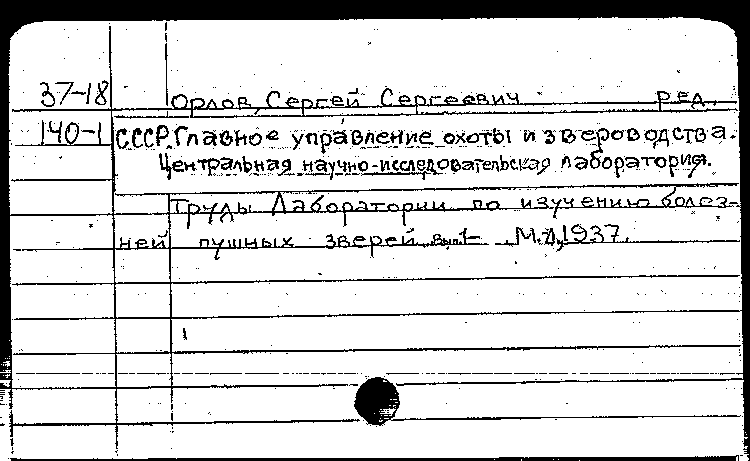 37-18 Орлов, Сергей Сергеевич ред.
140-1 СССР. Главное управление охоты и звероводства.
Центральная научно-исследовательская лаборатория.
Труды Лаборатории по изучению болез-
ней пушных зверей. Вып. 1- М.-Л., 1937.